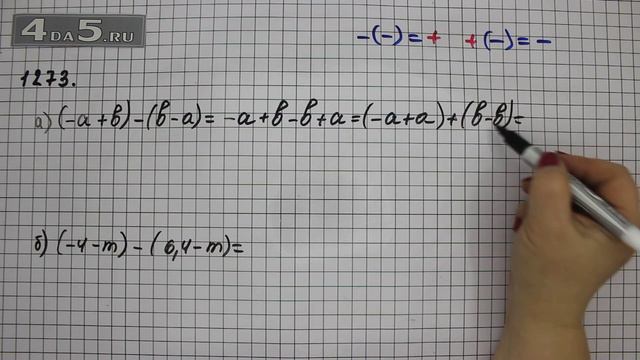 4DA5.RU
-(-)=+ +(-)=-
1273.
а) (-a+b)-(b-a)= -a+b-b+a=(-a+a)+(b-b)=
б) (-4-m)-(6,4-m)=